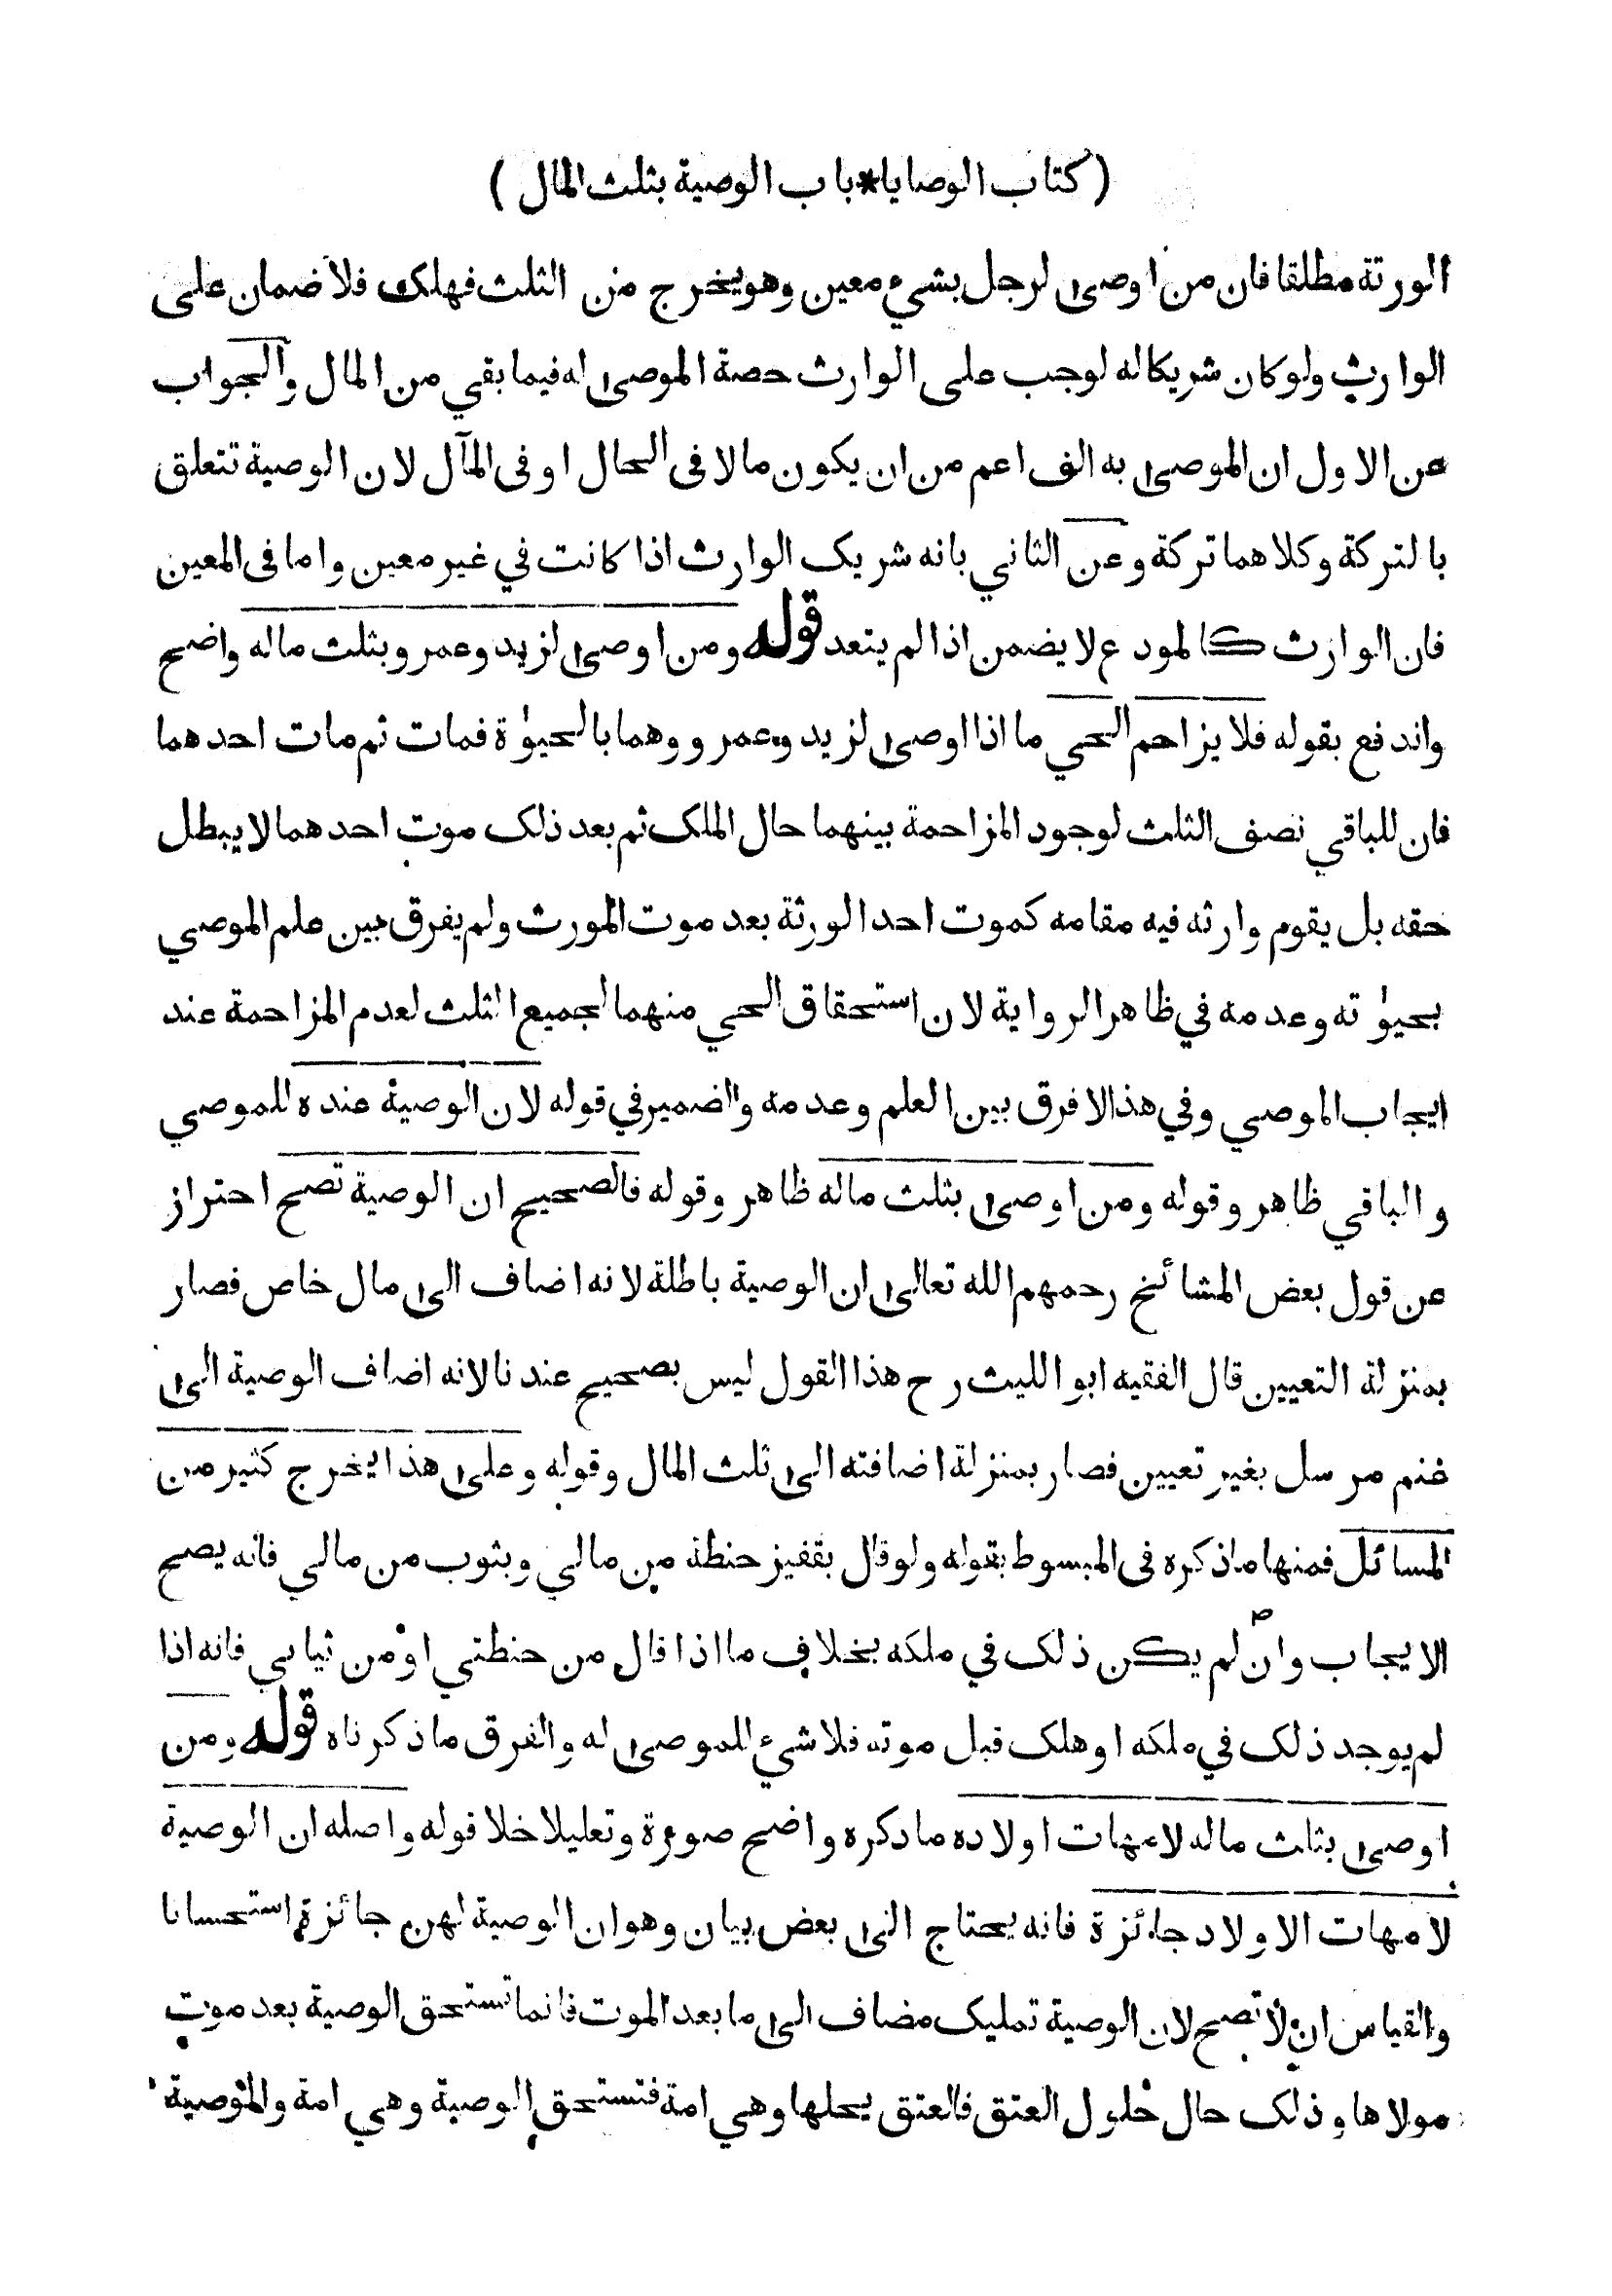 ( كتاب الوصايا * باب الوصية بثلث المال )
الورثة مطلقا فان من اوصى لرجل بشيء معين وهو يخرج من الثلث فهلك فلا ضمان على
الوارث ولو كان شريكا له لوجب على الوارث حصة الموصى له فيما بقي من المال والجواب
عن الاول ان الموصى به الف اعم من ان يكون مالا فى الحال او فى المآل لان الوصية تتعلق
بالتركة وكلاهما تركة وعن الثاني بانه شريك الوارث اذا كانت في غير معين واما فى المعين
فان الوارث كالمودع لا يضمن اذا لم يتعد قوله ومن اوصى لزيد وعمرو بثلث ماله واضح
واندفع بقوله فلا يزاحم الحي ما اذا اوصى لزيد وعمرو وهما بالحيوٰة فمات ثم مات احدهما
فان للباقي نصف الثلث لوجود المزاحمة بينهما حال الملك ثم بعد ذلك موت احدهما لا يبطل
حقه بل يقوم وارثه فيه مقامه كموت احد الورثة بعد موت المورث ولم يفرق بين علم الموصي
بحيوٰته وعدمه في ظاهر الرواية لان استحقاق الحي منهما لجميع الثلث لعدم المزاحمة عند
ايجاب الموصي وفي هذا لا فرق بين العلم وعدمه والضمير في قوله لان الوصية عنده للموصي
والباقي ظاهر وقوله ومن اوصى بثلث ماله ظاهر وقوله فالصحيح ان الوصية تصح احتراز
عن قول بعض المشائخ رحمهم الله تعالى ان الوصية باطلة لانه اضاف الى مال خاص فصار
بمنزلة التعيين قال الفقيه ابو الليث رح هذا القول ليس بصحيح عندنا لانه اضاف الوصية الى
غنم مرسل بغير تعيين فصار بمنزلة اضافته الى ثلث المال وقوله وعلى هذا يخرج كثير من
المسائل فمنها ما ذكره فى المبسوط بقوله ولو قال بقفيز حنطة من مالي وبثوب من مالي فانه يصح
الايجاب وان لم يكن ذلك في ملكه بخلاف ما اذا قال من حنطتي او من ثيابي فانه اذا
لم يوجد ذلك في ملكه او هلك قبل موته فلا شيء للموصى له والفرق ما ذكرناه قوله ومن
اوصى بثلث ماله لامهات اولاده ما ذكره واضح صورة وتعليلا خلا قوله واصله ان الوصية
لامهات الاولاد جائزة فانه يحتاج الى بعض بيان وهو ان الوصية لهن جائزة استحسانا
والقياس ان لا تصح لان الوصية تمليك مضاف الى ما بعد الموت فانما تستحق الوصية بعد موت
مولاها وذلك حال حلول العتق فالعتق يحلها وهي امة فتستحق الوصية وهي امة والموصية